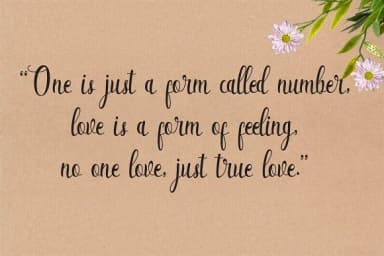 “One is just a form called number,
love is a form of feeling,
no one love, just true love.”